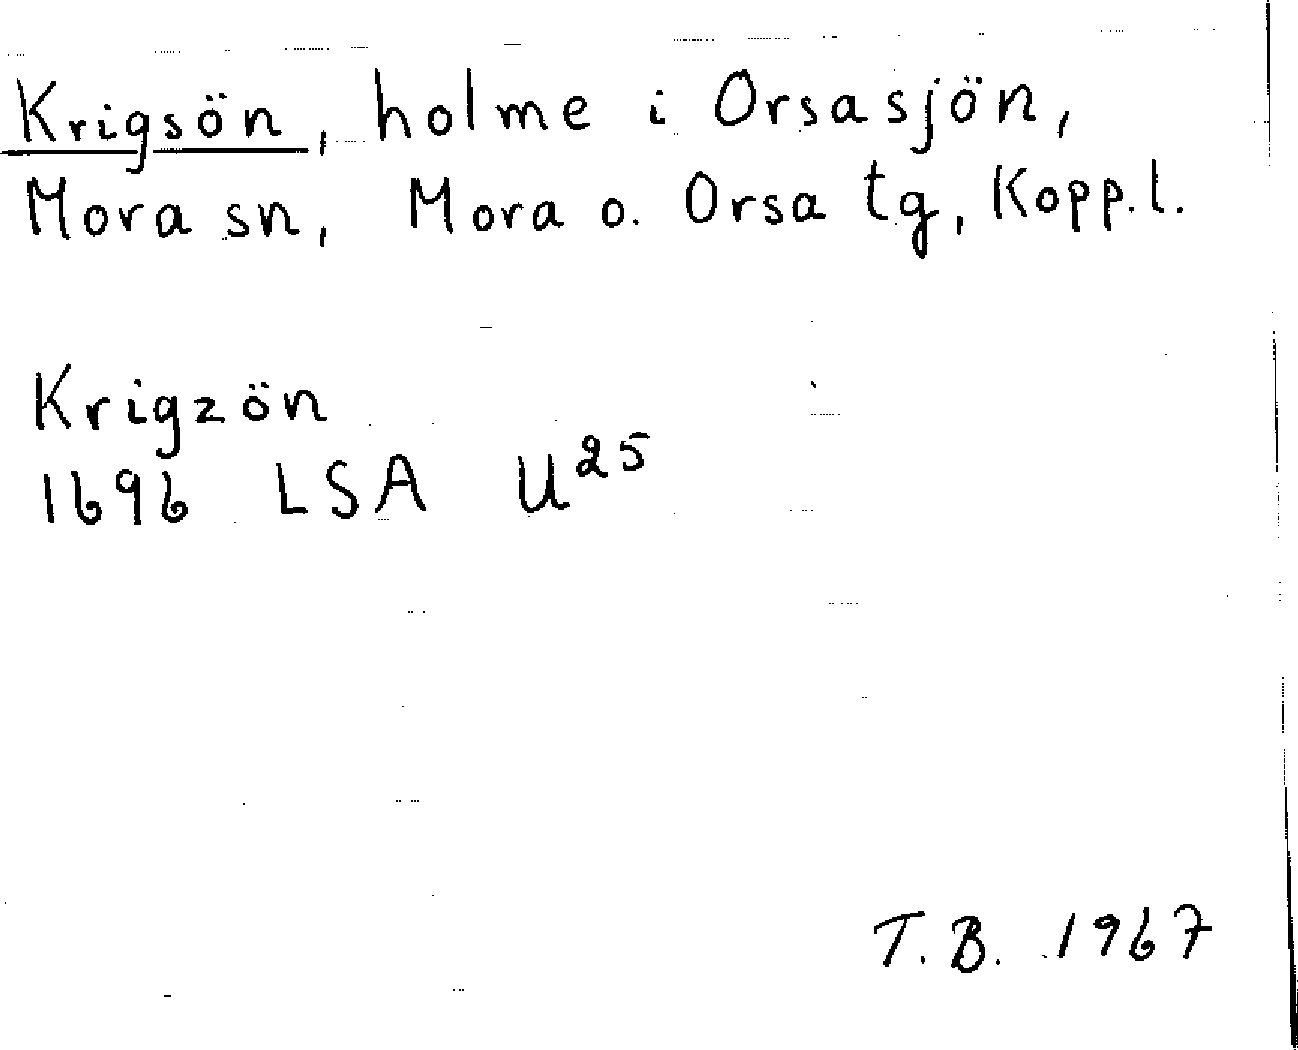 Krigsön, holme i Orsasjön,
Mora sn, Mora o. Orsa tg, Kopp.l.
Krigzön
1696 LSA U²⁵
T.B. 1967